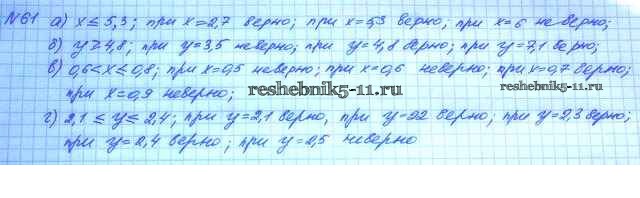 №61 а) x ≤ 5,3; при x=2,7 верно; при x=5,3 верно; при x=6 неверно;
б) y ≥ 4,8; при y=3,5 неверно; при y=4,8 верно; при y=7,1 верно;
в) 0,6 < x ≤ 0,8; при x=0,5 неверно; при x=0,6 неверно; при x=0,7 верно;
при x=0,9 неверно;
reshebnik5-11.ru
reshebnik5-11.ru
г) 2,1 ≤ y ≤ 2,4; при y=2,1 верно, при y=22 верно; при y=2,3 верно;
при y=2,4 верно; при y=2,5 неверно